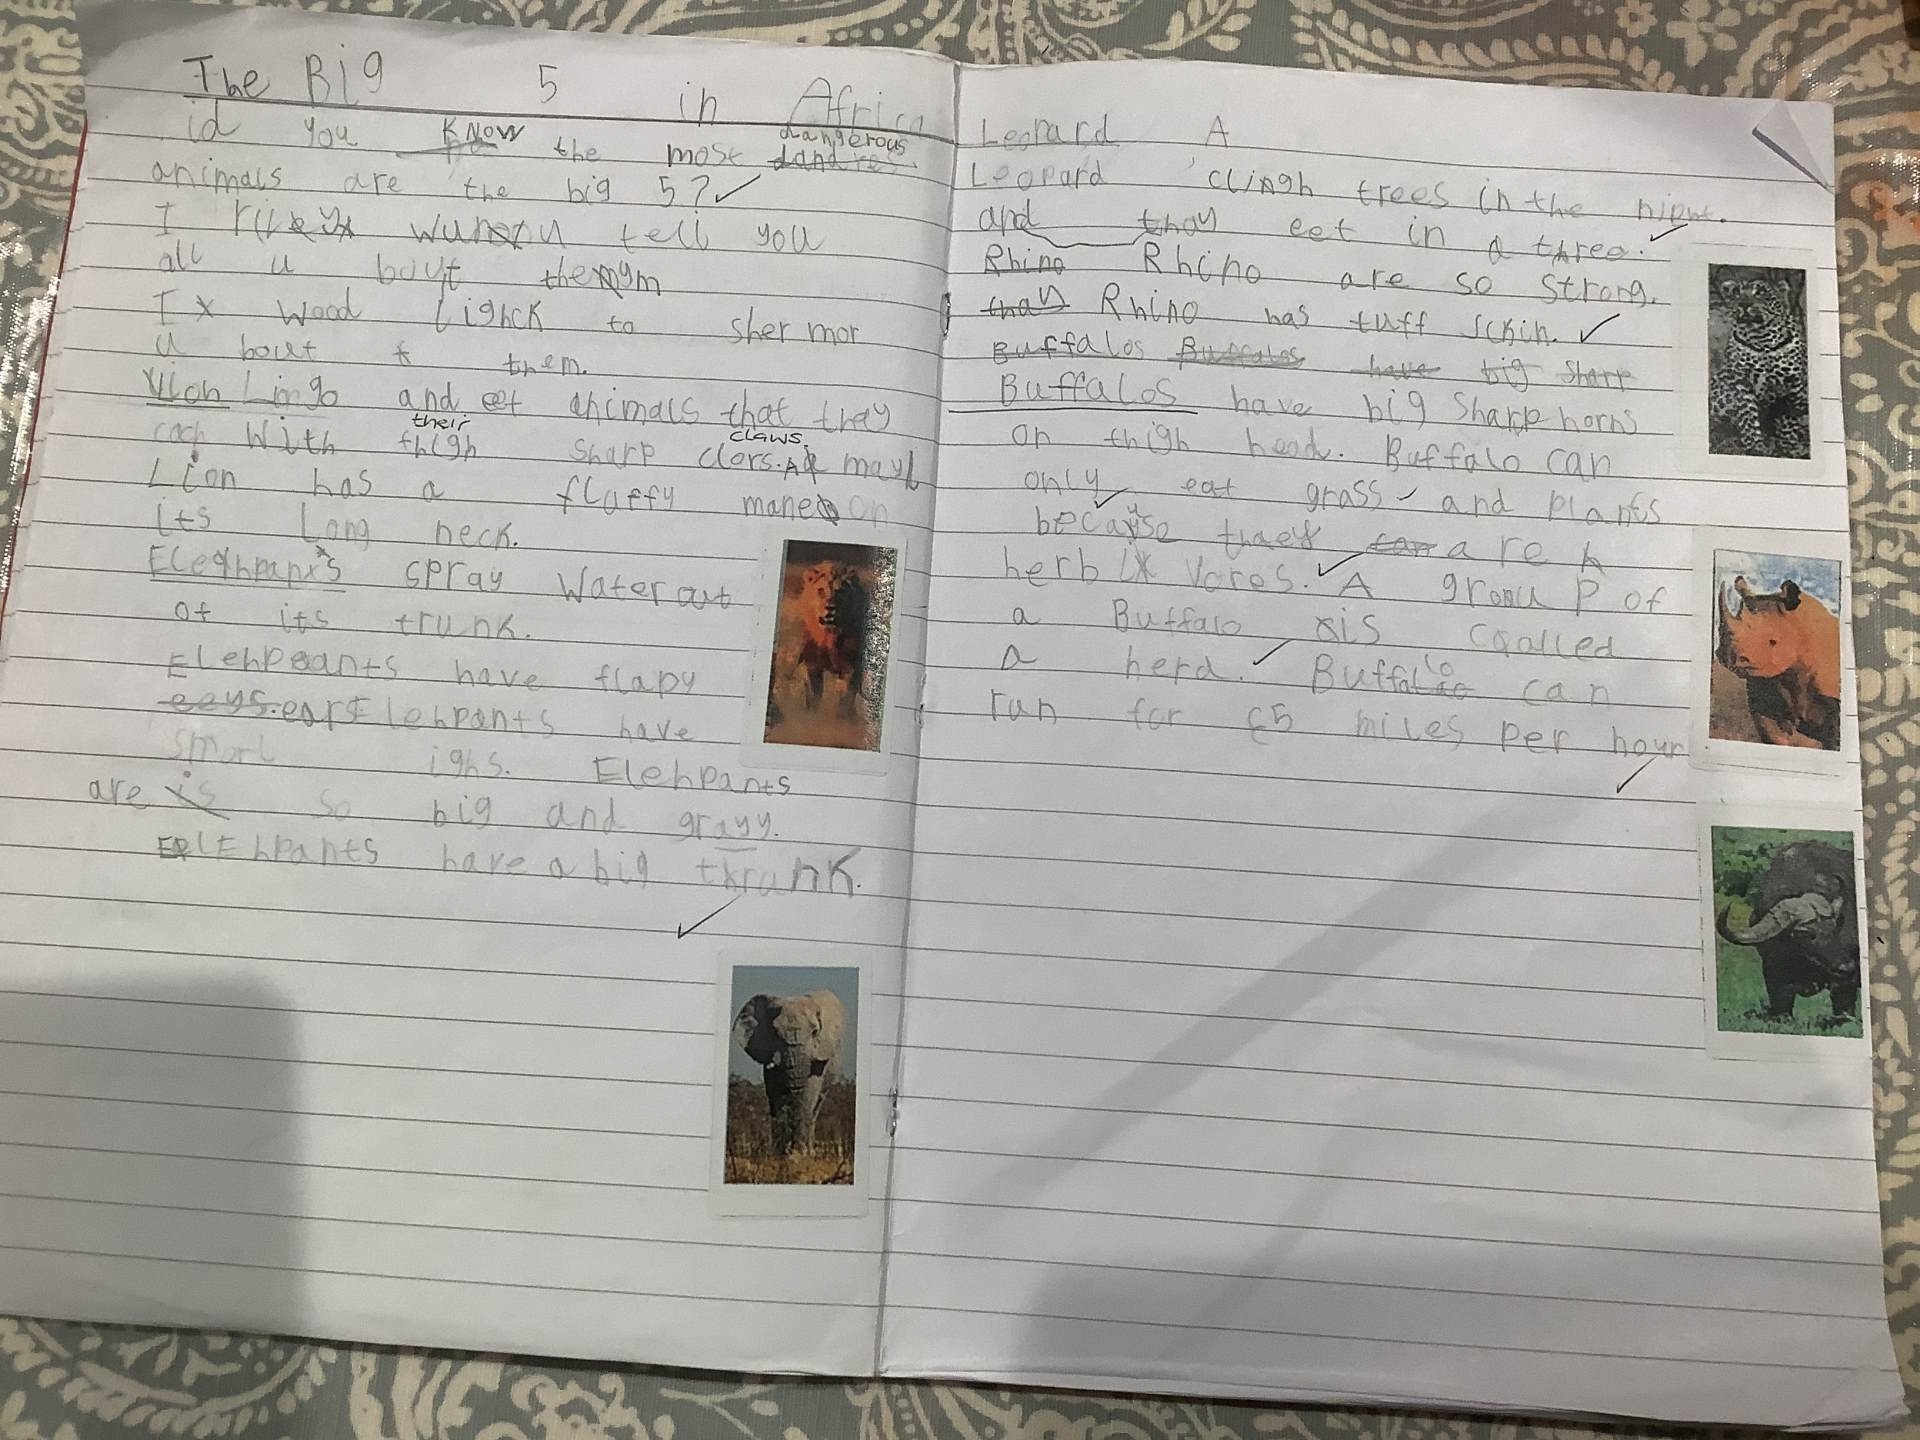 The Big 5 in Africa
id you know the most dangerous
animals are the big 5?
I wun u tell you
all u bout them
I wood lighck to sher mor
u bout them.
Lion Lingo and eet animals that they
with their thigh sharp clors. claws. A mayl
Lion has a fluffy mane on
its long neck.
Elephants spray water out
of its trunk.
Elehpants have flapy
eeys. ears Elehpants have
smorl ighs. Elehpants
are is so big and grayy.
ElEhpants have a big trunk.
Leopard A
Leopard clingh trees in the night.
and thay eet in a three.
Rhino Rhino are so strong.
thay Rhino has tuff sckin.
Buffalos Buffalos have big sharp
Buffalos have big sharp horns
on thigh head. Buffalo can
only eat grass and plants
because they can are h
herbivores. A group of
a Buffalo is called
a herd. Buffalo can
run for 65 miles per hour